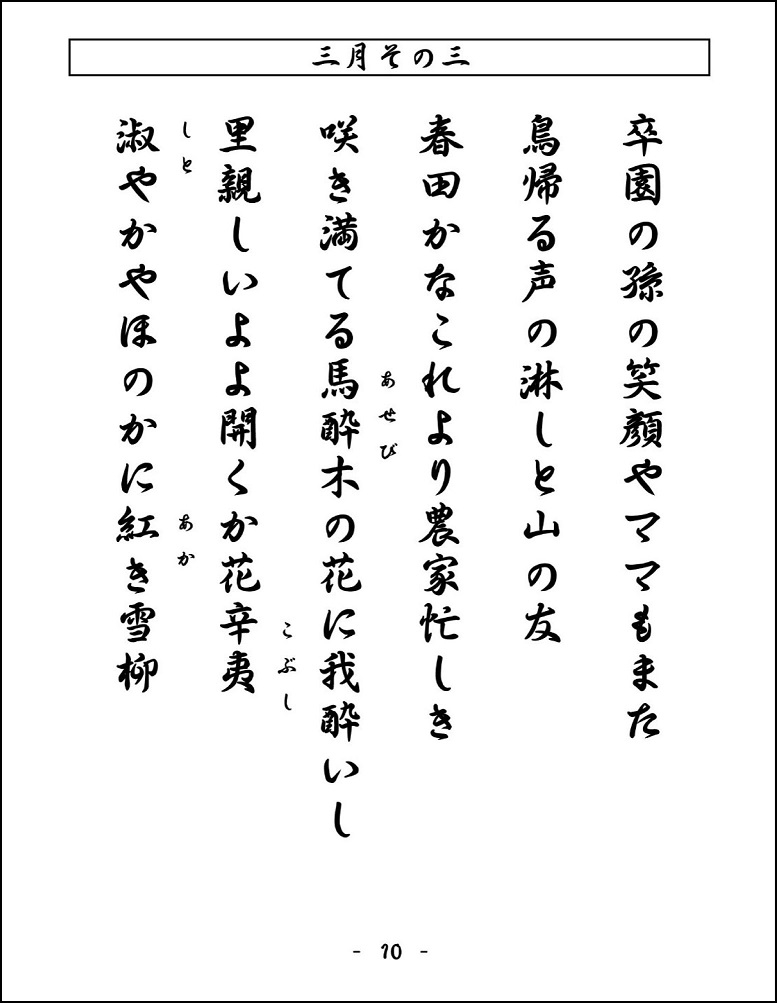 三月その三
卒園の孫の笑顔やママもまた
鳥帰る声の淋しと山の友
春田かなこれより農家忙しき
咲き満てる馬酔木の花に我酔いし
あせび
里親しいよよ開くか花辛夷
こぶし
淑やかやほのかに紅き雪柳
しと
あか
- 10 -